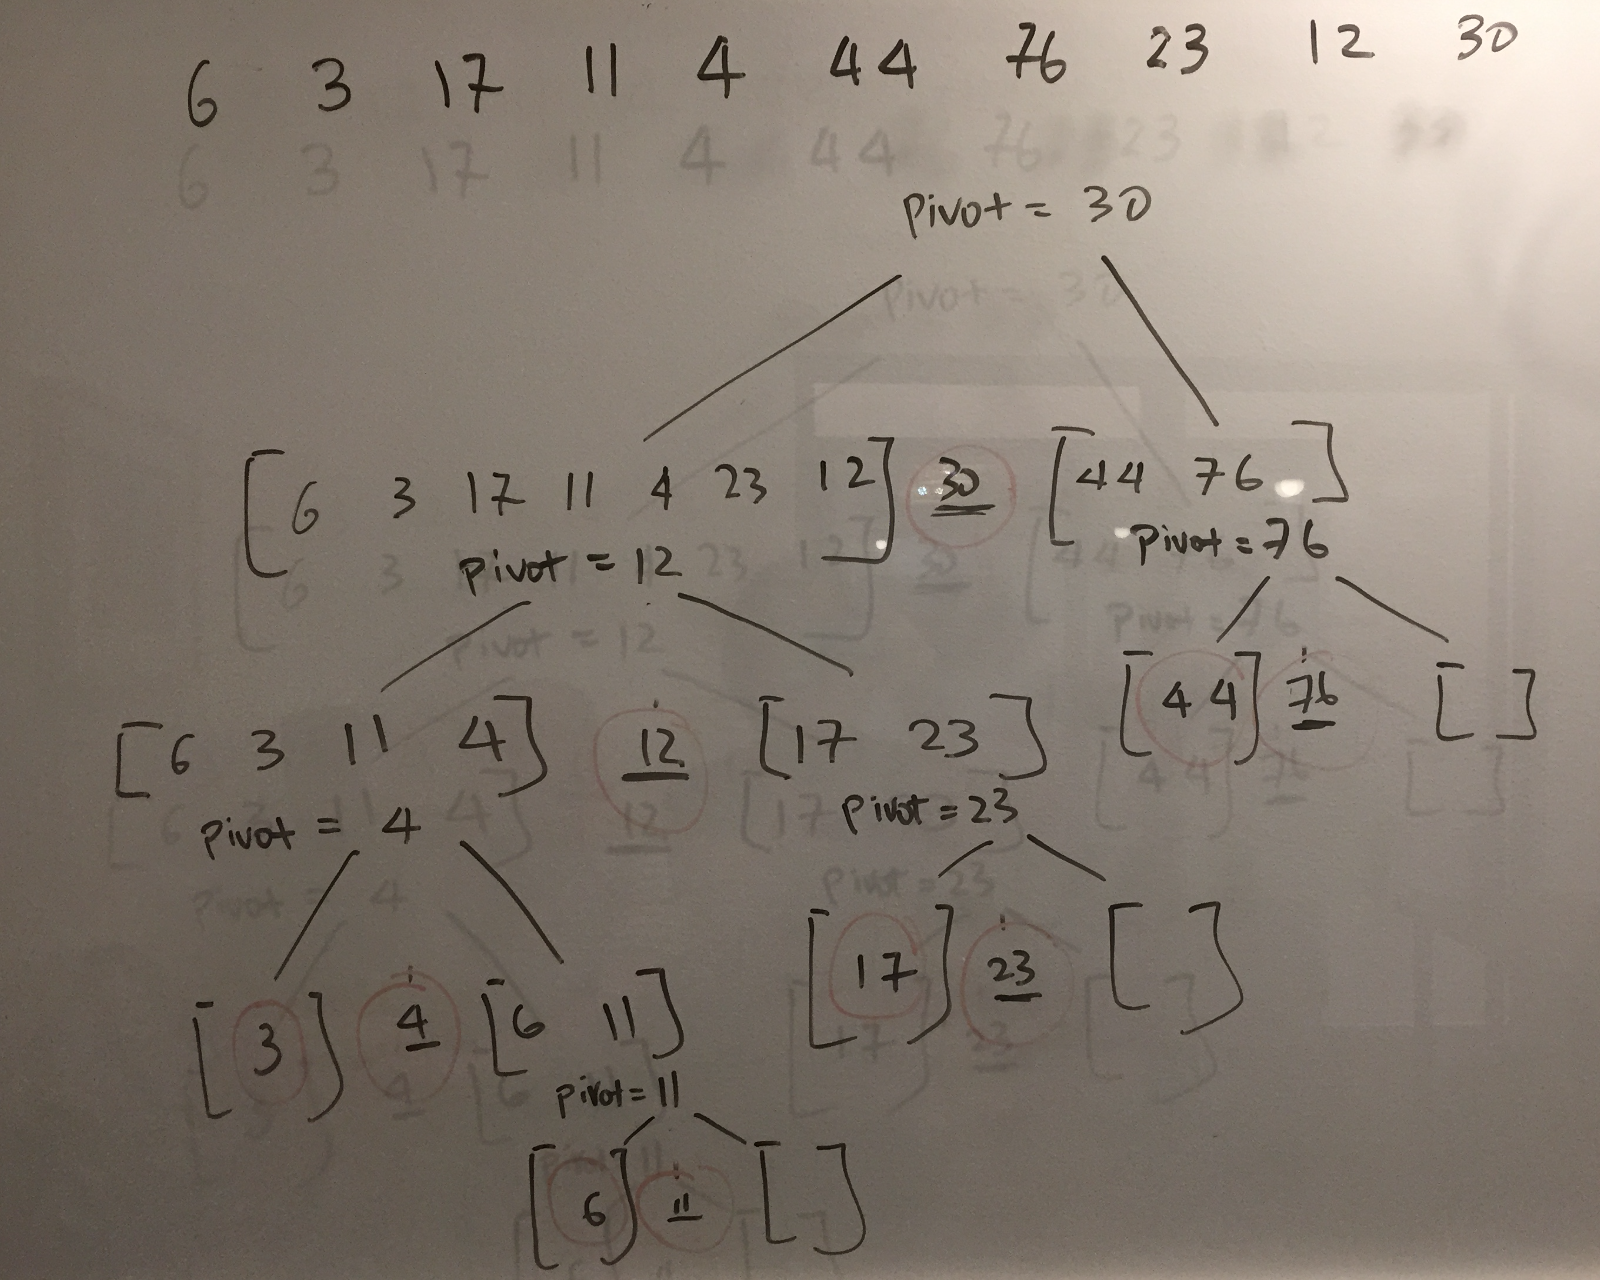 6 3 17 11 4 44 76 23 12 30
pivot = 30
[6 3 17 11 4 23 12] 30 [44 76]
pivot = 12 pivot = 76
[6 3 11 4] 12 [17 23] [44] 76 [ ]
pivot = 4 pivot = 23
[3] 4 [6 11] [17] 23 [ ]
pivot = 11
[6] 11 [ ]